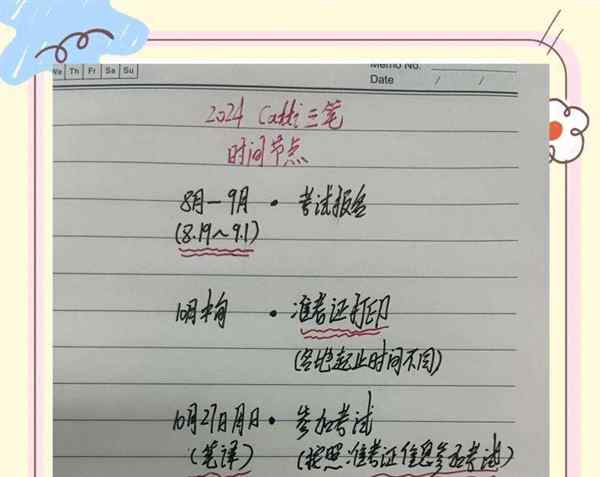 We Th Fr Sa Su
Memo No.
Date / /
2024 Catti三笔
时间节点
8月—9月 · 考试报名
(8.19~9.1)
10月中旬 · 准考证打印
(各地起止时间不同)
10月27日周日 · 参加考试
(笔译) (按照准考证信息参加考试)